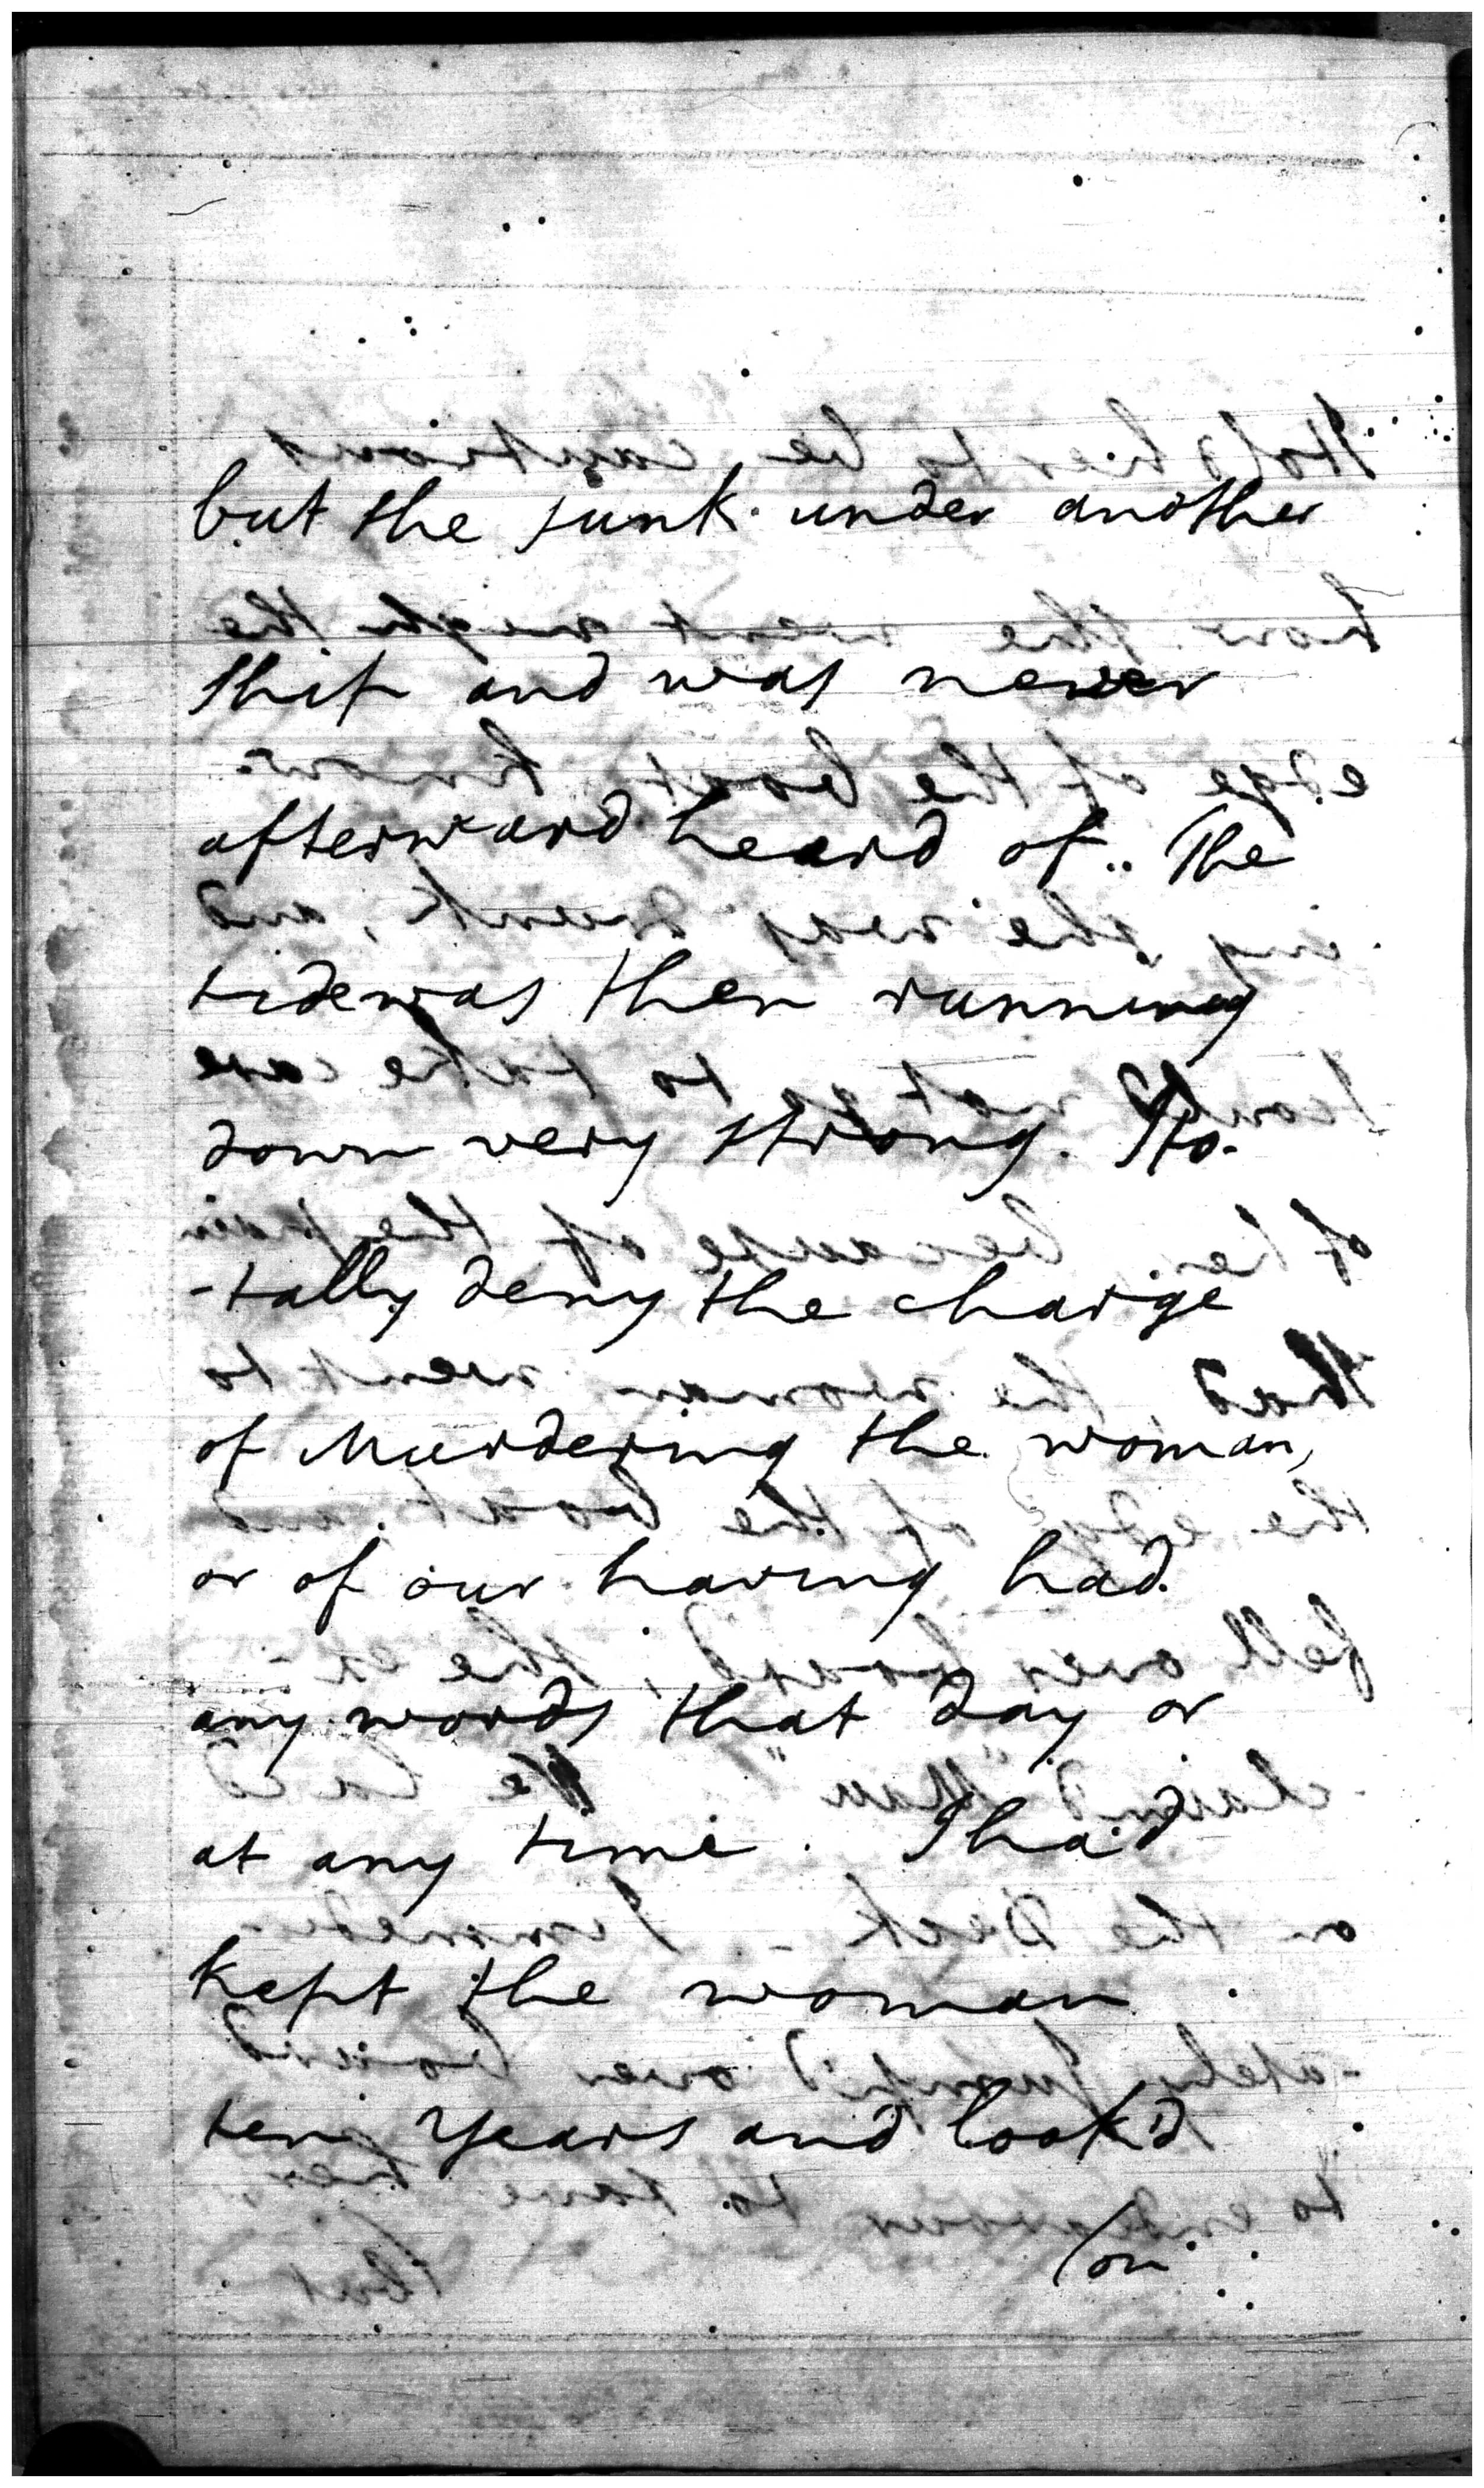 but she sunk under another
ship and was never
afterward heard of.. The
tide was then running
down very strong. I to-
-tally deny the charge
of Murdering the woman,
or of our having had
any words that day or
at any time. I had
kept the woman
ten years and look'd
(on